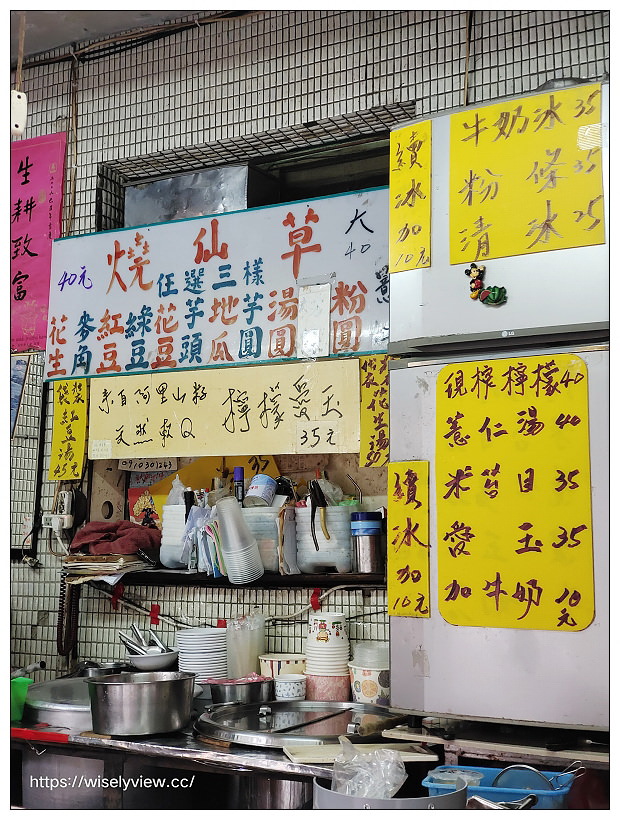 生耕致富
燒仙草 大40
40元 任選三樣
花生 麥角 紅豆 綠豆 花豆 芋頭 地瓜 芋圓 湯圓 粉圓
袋裝紅豆湯45元
來自阿里山籽
天然軟Q
檸檬愛玉
35元
0910301243
35
續冰加10元
牛奶冰35
粉條35
清冰25
LG
現榨檸檬40
薏仁湯40
米苔目35
愛玉35
加牛奶10元
續冰加10元
https://wiselyview.cc/